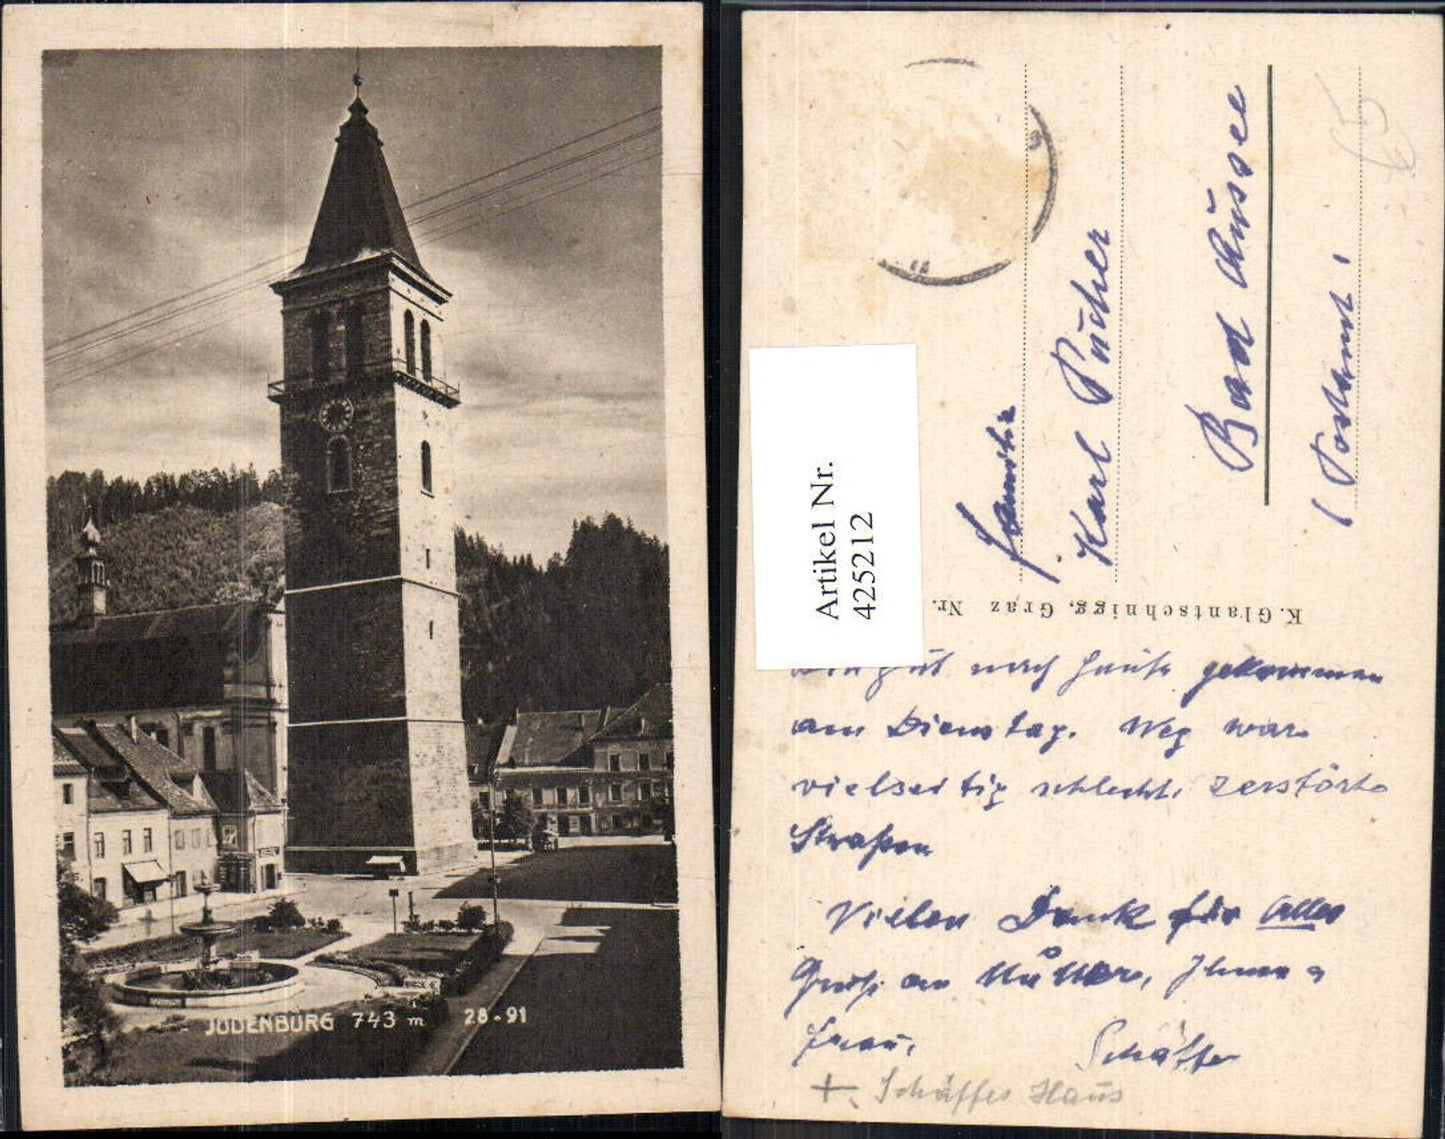 JUDENBURG 743 m 28-91
Artikel Nr.
425212
Familie
Karl Pücher
Bad Aussee
(Postamt)
K. Glantschnigg, Graz Nr.
gut nach Hause gekommen
am Dienstag. Weg war
vielseitig schlecht, zerstörte
Straßen
Vielen Dank für Alles
Gruß an Mutter, Ihnen u
Frau,
Schäffer
+ Schäffer Haus